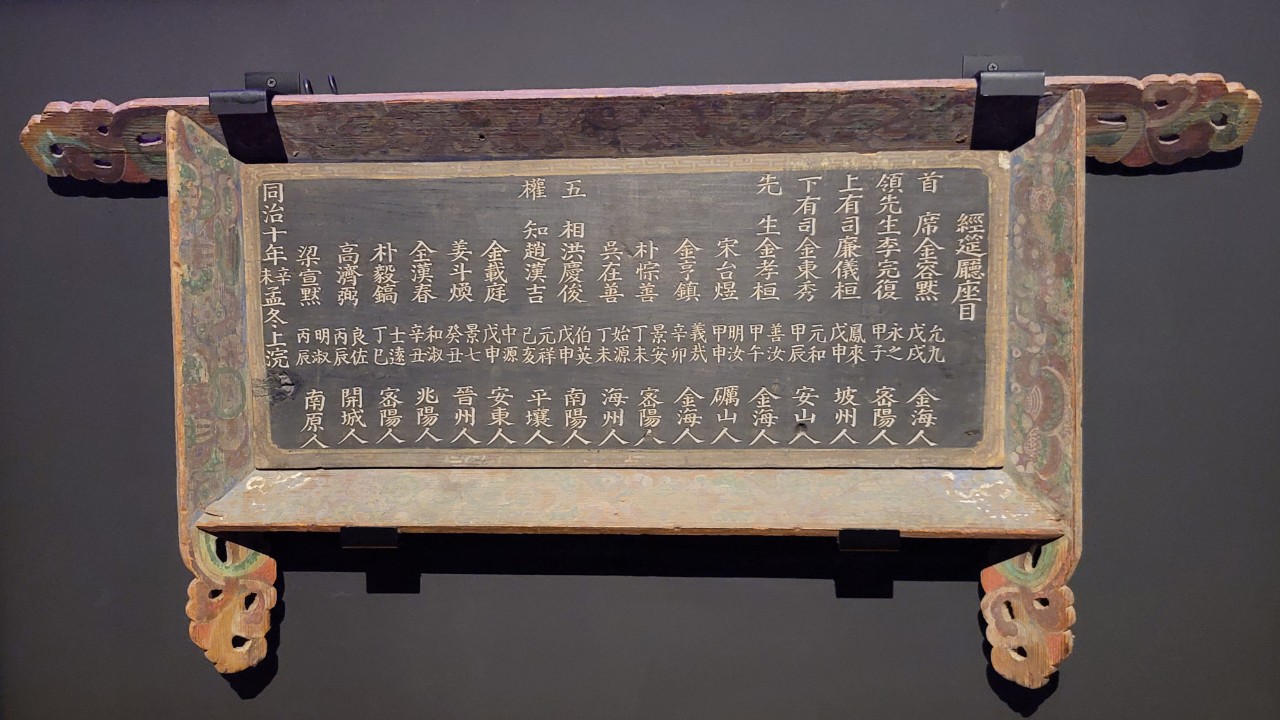 經筵廳座目
首席金容默 允九 戊戌 金海人
領先生李完復 永之 甲子 密陽人
上有司廉儀桓 鳳來 戊申 坡州人
下有司金東秀 元和 甲辰 安山人
先生金孝桓 善汝 甲午 金海人
宋台煜 明汝 甲申 礪山人
金亨鎮 義哉 辛卯 金海人
朴悰善 景安 丁未 密陽人
吳在善 始源 丁未 海州人
五相洪慶俊 伯英 戊申 南陽人
權知趙漢吉 元祥 己亥 平壤人
金載庭 中源 戊申 安東人
姜斗煥 景七 癸丑 晉州人
仝漢春 和淑 辛丑 兆陽人
朴毅鎬 士遠 丁巳 密陽人
高濟弼 良佐 丙辰 開城人
梁宣默 明淑 丙辰 南原人
同治十年辛未孟冬上浣